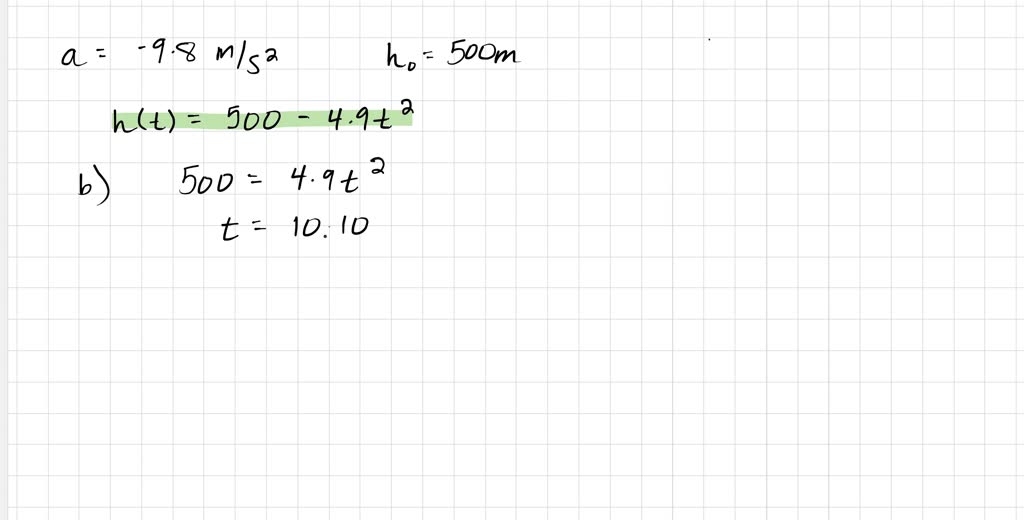 a = -9.8 m/s² h₀ = 500m
h(t) = 500 - 4.9t²
b) 500 = 4.9t²
t = 10.10